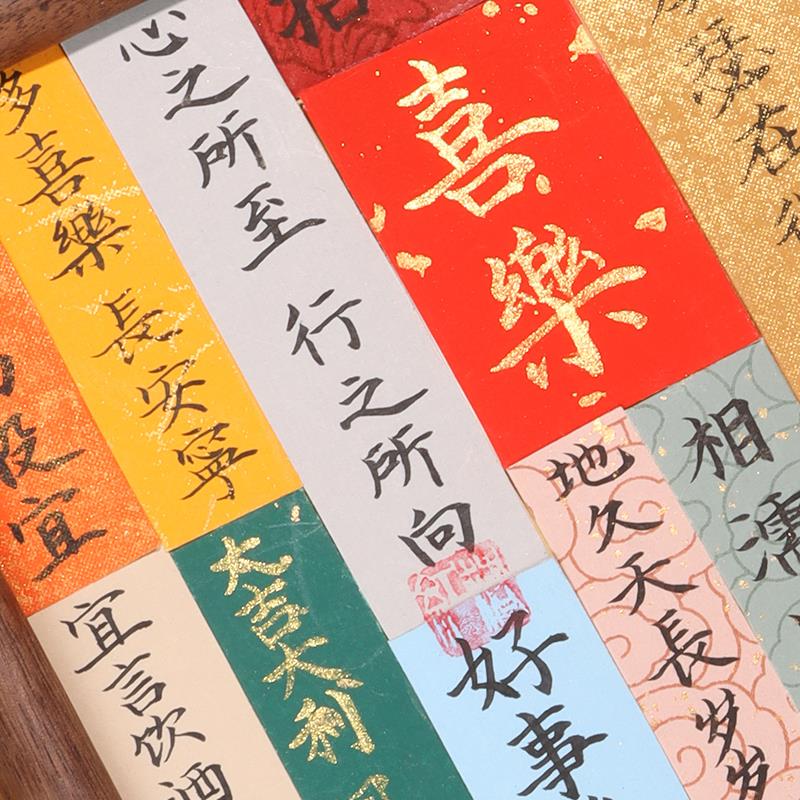 多喜樂 長安寧
心之所至 行之所向
喜樂
在
相濡
投宜
宜言饮酒
大吉大利
好事
地久天長 岁岁